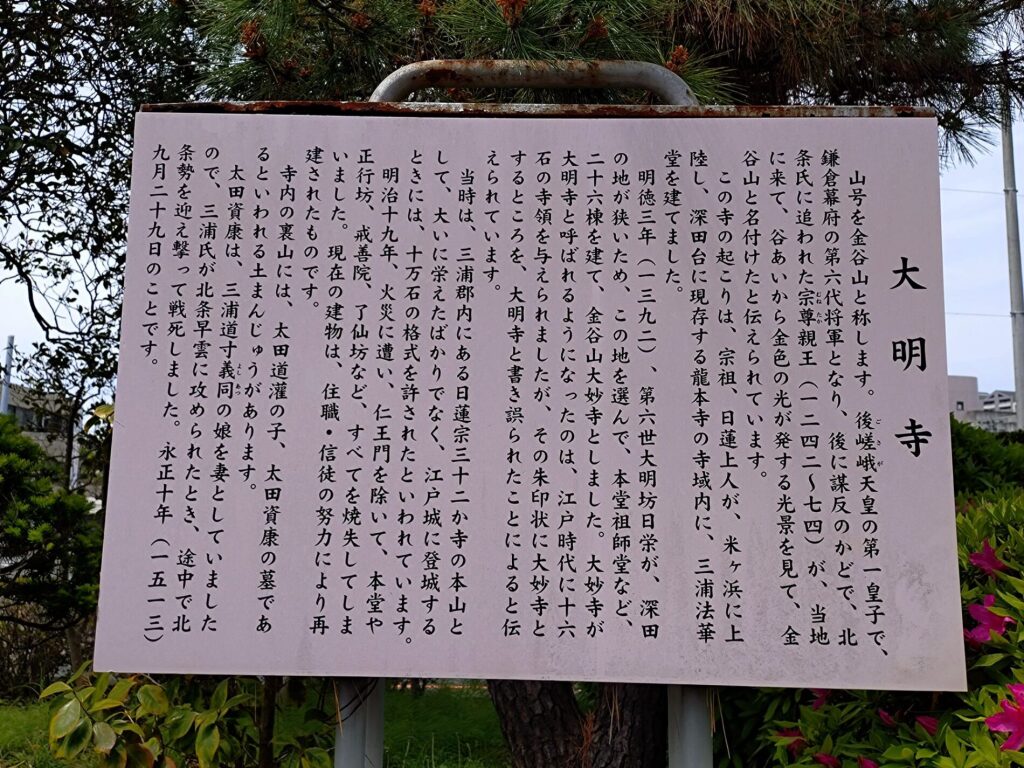 大明寺
山号を金谷山と称します。後嵯峨天皇の第一皇子で、
ごさが
鎌倉幕府の第六代将軍となり、後に謀反のかどで、北
条氏に追われた宗尊親王（一二四二～七四）が、当地
むねたか
に来て、谷あいから金色の光が発する光景を見て、金
谷山と名付けたと伝えられています。
この寺の起こりは、宗祖、日蓮上人が、米ヶ浜に上
陸し、深田台に現存する龍本寺の寺域内に、三浦法華
堂を建てました。
明徳三年（一三九二）、第六世大明坊日栄が、深田
の地が狭いため、この地を選んで、本堂祖師堂など、
二十六棟を建て、金谷山大妙寺としました。大妙寺が
大明寺と呼ばれるようになったのは、江戸時代に十六
石の寺領を与えられましたが、その朱印状に大妙寺と
するところを、大明寺と書き誤られたことによると伝
えられています。
当時は、三浦郡内にある日蓮宗三十二か寺の本山と
して、大いに栄えたばかりでなく、江戸城に登城する
ときには、十万石の格式を許されたといわれています。
明治十九年、火災に遭い、仁王門を除いて、本堂や
正行坊、戒善院、了仙坊など、すべてを焼失してしま
いました。現在の建物は、住職・信徒の努力により再
建されたものです。
寺内の裏山には、太田道灌の子、太田資康の墓であ
るといわれる土まんじゅうがあります。
太田資康は、三浦道寸義同の娘を妻としていました
よしあつ
ので、三浦氏が北条早雲に攻められたとき、途中で北
条勢を迎え撃って戦死しました。永正十年（一五一三）
九月二十九日のことです。